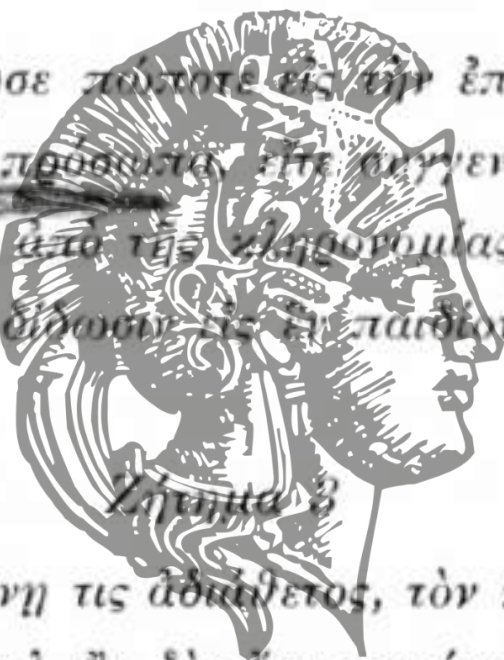 σε πώποτε εἰς τὴν ἐπ
πρόσωπα, εἴτε συγγεν
ἀπὸ τῆς κληρονομίας
δίδωσιν εἰς ἓν παιδίον
Ζήτημα 3
νῃ τις ἀδιάθετος, τὸν